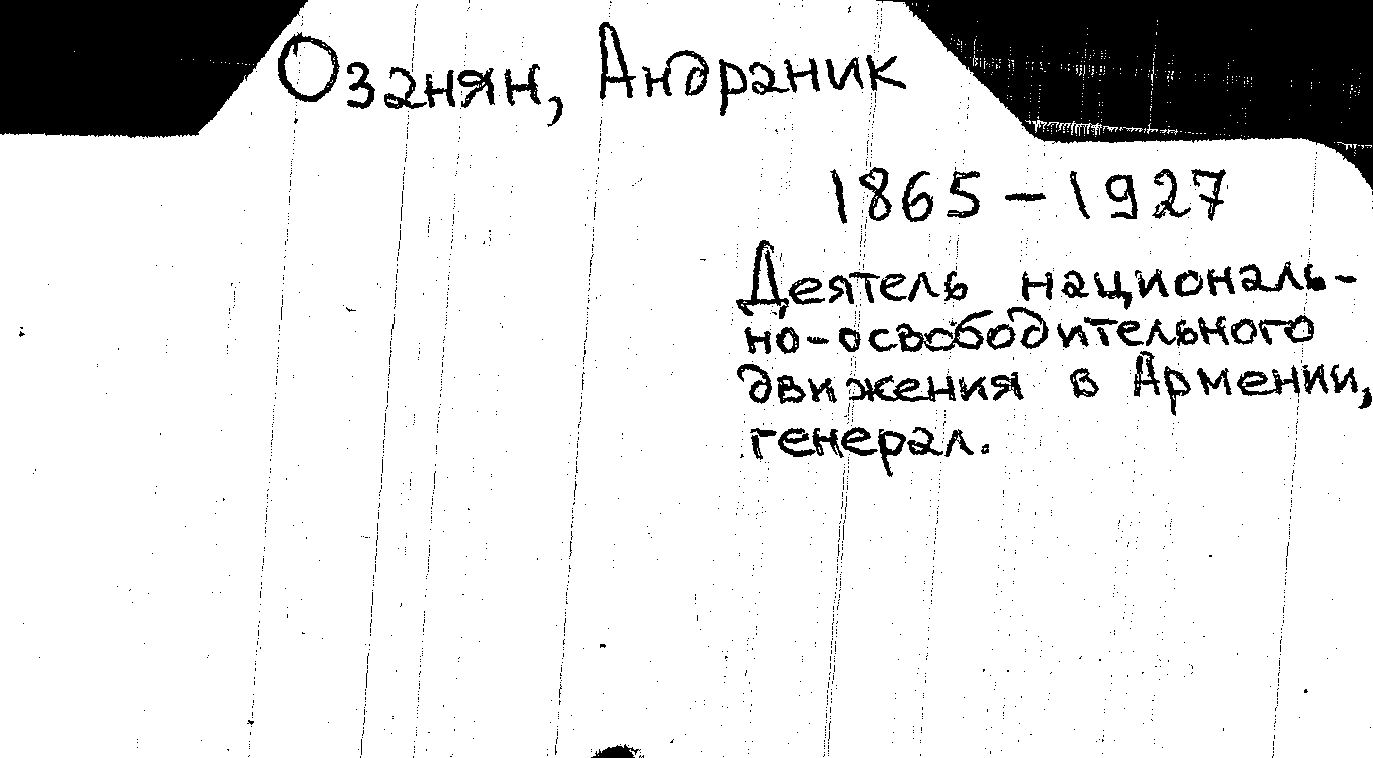 Озанян, Андраник
1865 – 1927
Деятель националь-
но-освободительного
движения в Армении,
генерал.